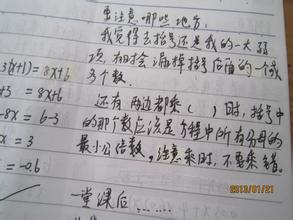 要注意哪些地方。
我觉得去括号还是我的一大弱
3(x+1)=8x+6 项,有时会漏掉括号后面的一个或
+3=8x+6 多个数。
还有两边都乘( )时,括号中
-8x=6-3 的那个数应该是方程中所有分母的
x=3 最小公倍数,注意乘时,不要乘错。
=-0.6
一堂课后……
2013/01/21